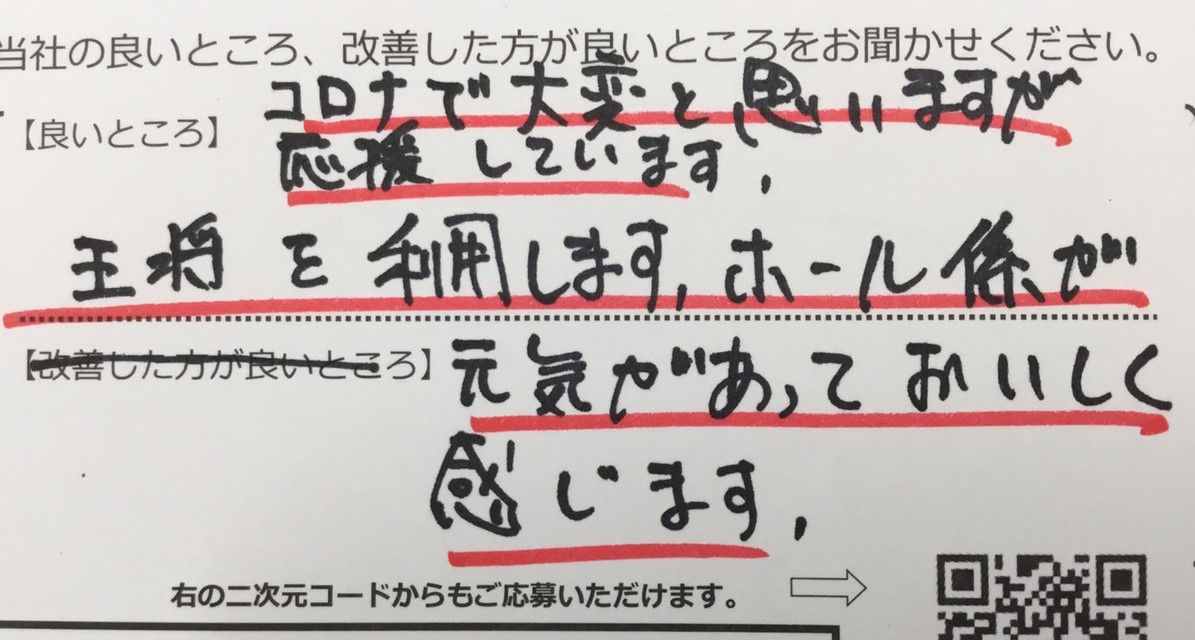 当社の良いところ、改善した方が良いところをお聞かせください。
【良いところ】
コロナで大変と思いますが
応援しています,
王将を利用します,ホール係が
【改善した方が良いところ】
元気があっておいしく
感じます,
右の二次元コードからもご応募いただけます。